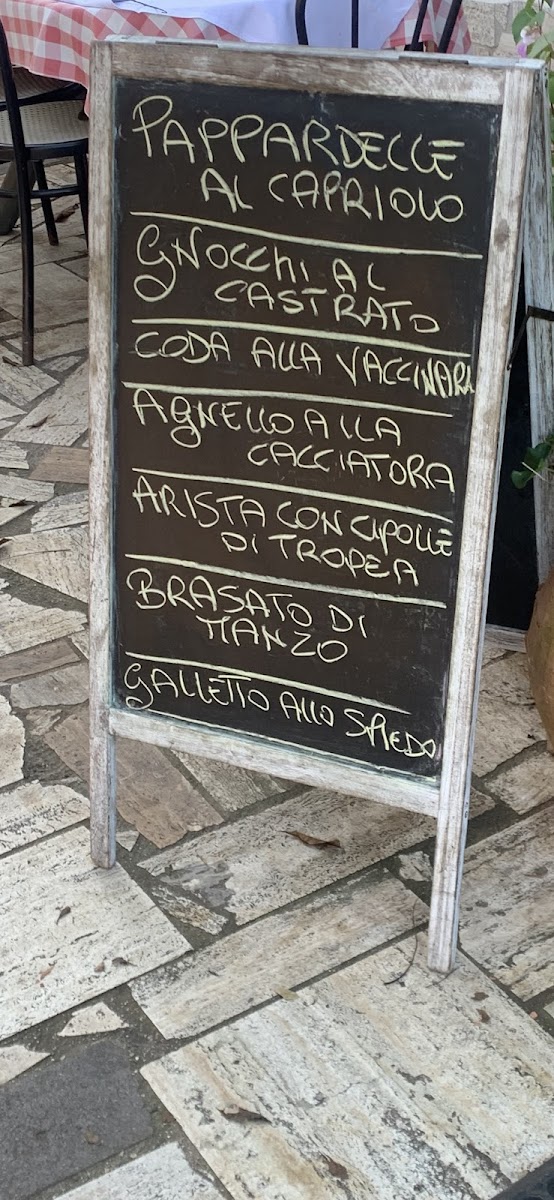 PAPPARDELLE
AL CAPRIOLO
GNOCCHI AL
CASTRATO
CODA ALLA VACCINARA
AGNELLO ALLA
CACCIATORA
ARISTA CON CIPOLLE
DI TROPEA
BRASATO DI
MANZO
GALLETTO ALLO SPIEDO